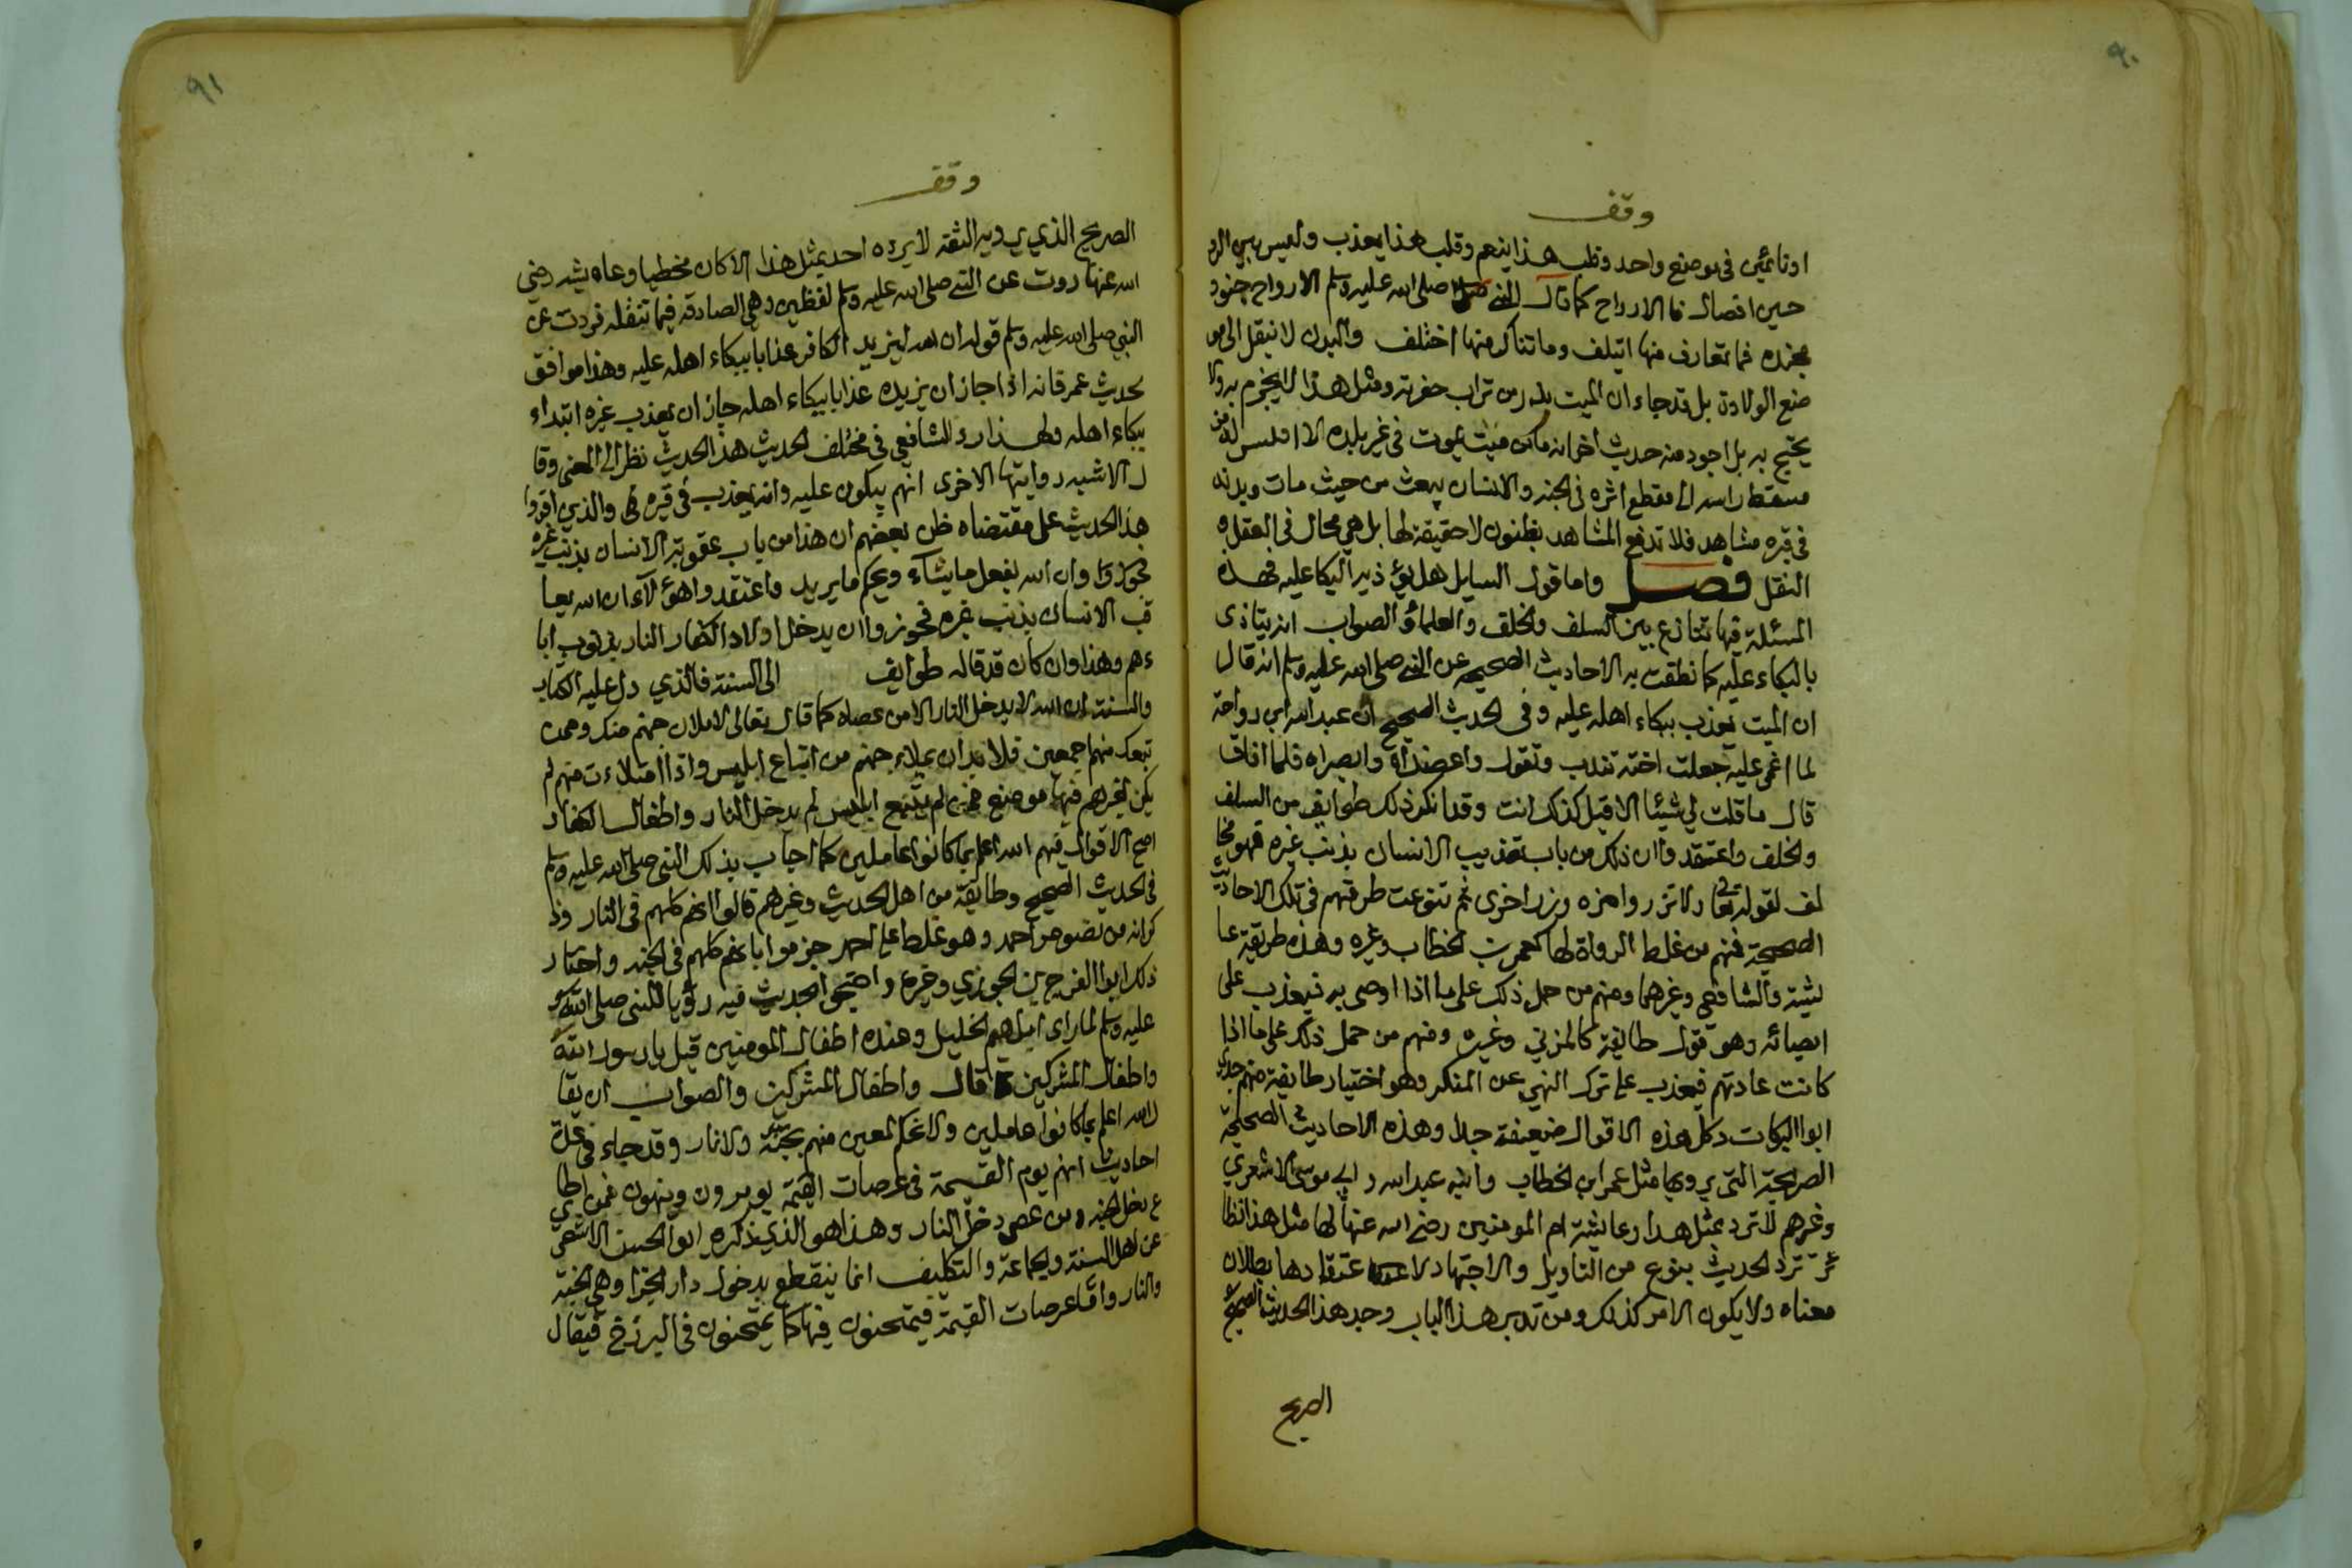 ٩٠
وقف
او نائمين في موضع واحد وقلب هذا ينعم وقلب هذا يعذب وليس بين الرو
حين اتصال فا الارواح كما قال النبي صلى الله عليه وسلم الارواح جنود
مجنده فما تعارف منها ايتلف وما تناكر منها اختلف والبدن لا ينقل الى مو
ضع الولادة بل قد جاء ان الميت يذر من تراب حفرته ومثل هذا لا يجزم به ولا
يحتج به بل اجود منه حديث اخر انه ما من ميت يموت في غير بلده الا قيس له من
مسقط راسه الى مقطع اثره في الجنه والانسان يبعث من حيث مات وبدنه
في قبره مشاهد فلا تدفع المشاهد بظنون لا حقيقة لها بل هي محال في العقل و
النقل فصل واما قول السايل هل يؤذيه البكا عليه فهذه
المسئلة فيها تنازع بين السلف والخلف والعلماء والصواب انه يتاذى
بالبكاء عليه كما نطقت به الاحاديث الصحيحه عن النبي صلى الله عليه وسلم انه قال
ان الميت يعذب ببكاء اهله عليه وفي الحديث الصحيح ان عبد الله ابن رواحة
لما اغمي عليه جعلت اخته تندب وتقول واعضداه وابصراه فلما افاق
قال ما قلت لي شيئا الا قيل كذلك انت وقد انكر ذلك طوايف من السلف
والخلف واعتقدوا ان ذلك من باب تعذيب الانسان بذنب غيره فهو مخا
لف لقوله تعالى ولا تزر وازره وزر اخرى ثم تنوعت طرقهم في تلك الاحاديث
الصحيحة فمنهم من غلط الرواة لها كعمر بن الخطاب وغيره وهذه طريقة عا
ئشة والشافعي وغيرهما ومنهم من حمل ذلك على ما اذا اوصى به فيعذب على
ايصائه وهو قول طائفة كالمزني وغيره ومنهم من حمل ذلك على ما اذا
كانت عادتهم فيعذب على ترك النهي عن المنكر وهو اختيار طايفة منهم جدي
ابوا البركات وكل هذه الاقوال ضعيفة جدا وهذه الاحاديث الصحيحة
الصريحة التي يرويها مثل عمر ابن الخطاب وابنه عبد الله وابي موسى الاشعري
وغيرهم لا ترد بمثل هذا وعايشة ام المومنين رضي الله عنها لها مثل هذا نظا
ئر ترد الحديث بنوع من التاويل والاجتهاد لا عتقادها بطلان
معناه ولا يكون الامر كذلك ومن تدبر هذا الباب وجد هذا الحديث الصحيح
الصريح
٩١
وقف
الصريح الذي يرويه الثقة لا يرده احد بمثل هذا الا كان مخطيا وعايشه رضي
الله عنها روت عن النبي صلى الله عليه وسلم لفظين وهي الصادقه فيما تنقله فروت عن
النبي صلى الله عليه وسلم قوله ان الله ليزيد الكافر عذابا ببكاء اهله عليه وهذا موافق
لحديث عمر فانه اذا جاز ان يزيده عذابا ببكاء اهله جاز ان يعذب غيره ابتداء
ببكاء اهله ولهذا رد الشافعي في مختلف الحديث هذا الحديث نظر الى المعنى وقا
ل الاشبه روايتها الاخرى انهم يبكون عليه وانه يعذب في قبره والذين اقروا
هذا الحديث على مقتضاه ظن بعضهم ان هذا من باب عقوبة الانسان بذنب غيره
وان الله يفعل ما يشآء ويحكم ما يريد واعتقدوا هؤلآء ان الله يعا
قب الانسان بذنب غيره فجوزوا ان يدخل اولاد الكفار النار بذنوب ابا
ءهم وهذا وان كان قد قاله طوايف الى السنة فالذي دل عليه الكتاب
والسنة ان الله لا يدخل النار الا من عصاه كما قال تعالى لاملان جهنم منك وممن
تبعك منهم اجمعين فلا بد ان يملاء جهنم من اتباع ابليس واذا امتلاءت منهم لم
يكن لغيرهم فيها موضع فمن لم يتبع ابليس لم يدخل النار واطفال الكفار
اصح الاقوال فيهم الله اعلم بما كانوا عاملين كما اجاب بذلك النبي صلى الله عليه وسلم
في الحديث الصحيح وطايفة من اهل الحديث وغيرهم قالوا انهم كلهم في النار وذ
كر انه من نصوص احمد وهو غلط على احمد جزموا بانهم كلهم في الجنه واختار
ذلك ابوا الفرج بن الجوزي وغيره واحتجوا بحديث فيه رؤيا النبي صلى الله
عليه وسلم لما راى ابراهيم الخليل وعنده اطفال المومنين قيل يا رسول الله
واطفال المشركين قال واطفال المشركين والصواب ان يقا
ل الله اعلم بما كانوا عاملين ولا نحكم لمعين منهم بجنة ولا نار وقد جاء في عدة
احاديث انهم يوم القيمة في عرصات القيمة يومرون وينهون فمن اطا
ع دخل الجنه ومن عصى دخل النار وهذا هو الذي ذكره ابوا الحسن الاشعري
عن اهل السنة والجماعة والتكليف انما ينقطع بدخول دار الجزا وهي الجنة
والنار واما عرصات القيمة فيمتحنون فيها كما يمتحنون في البرزخ فيقال